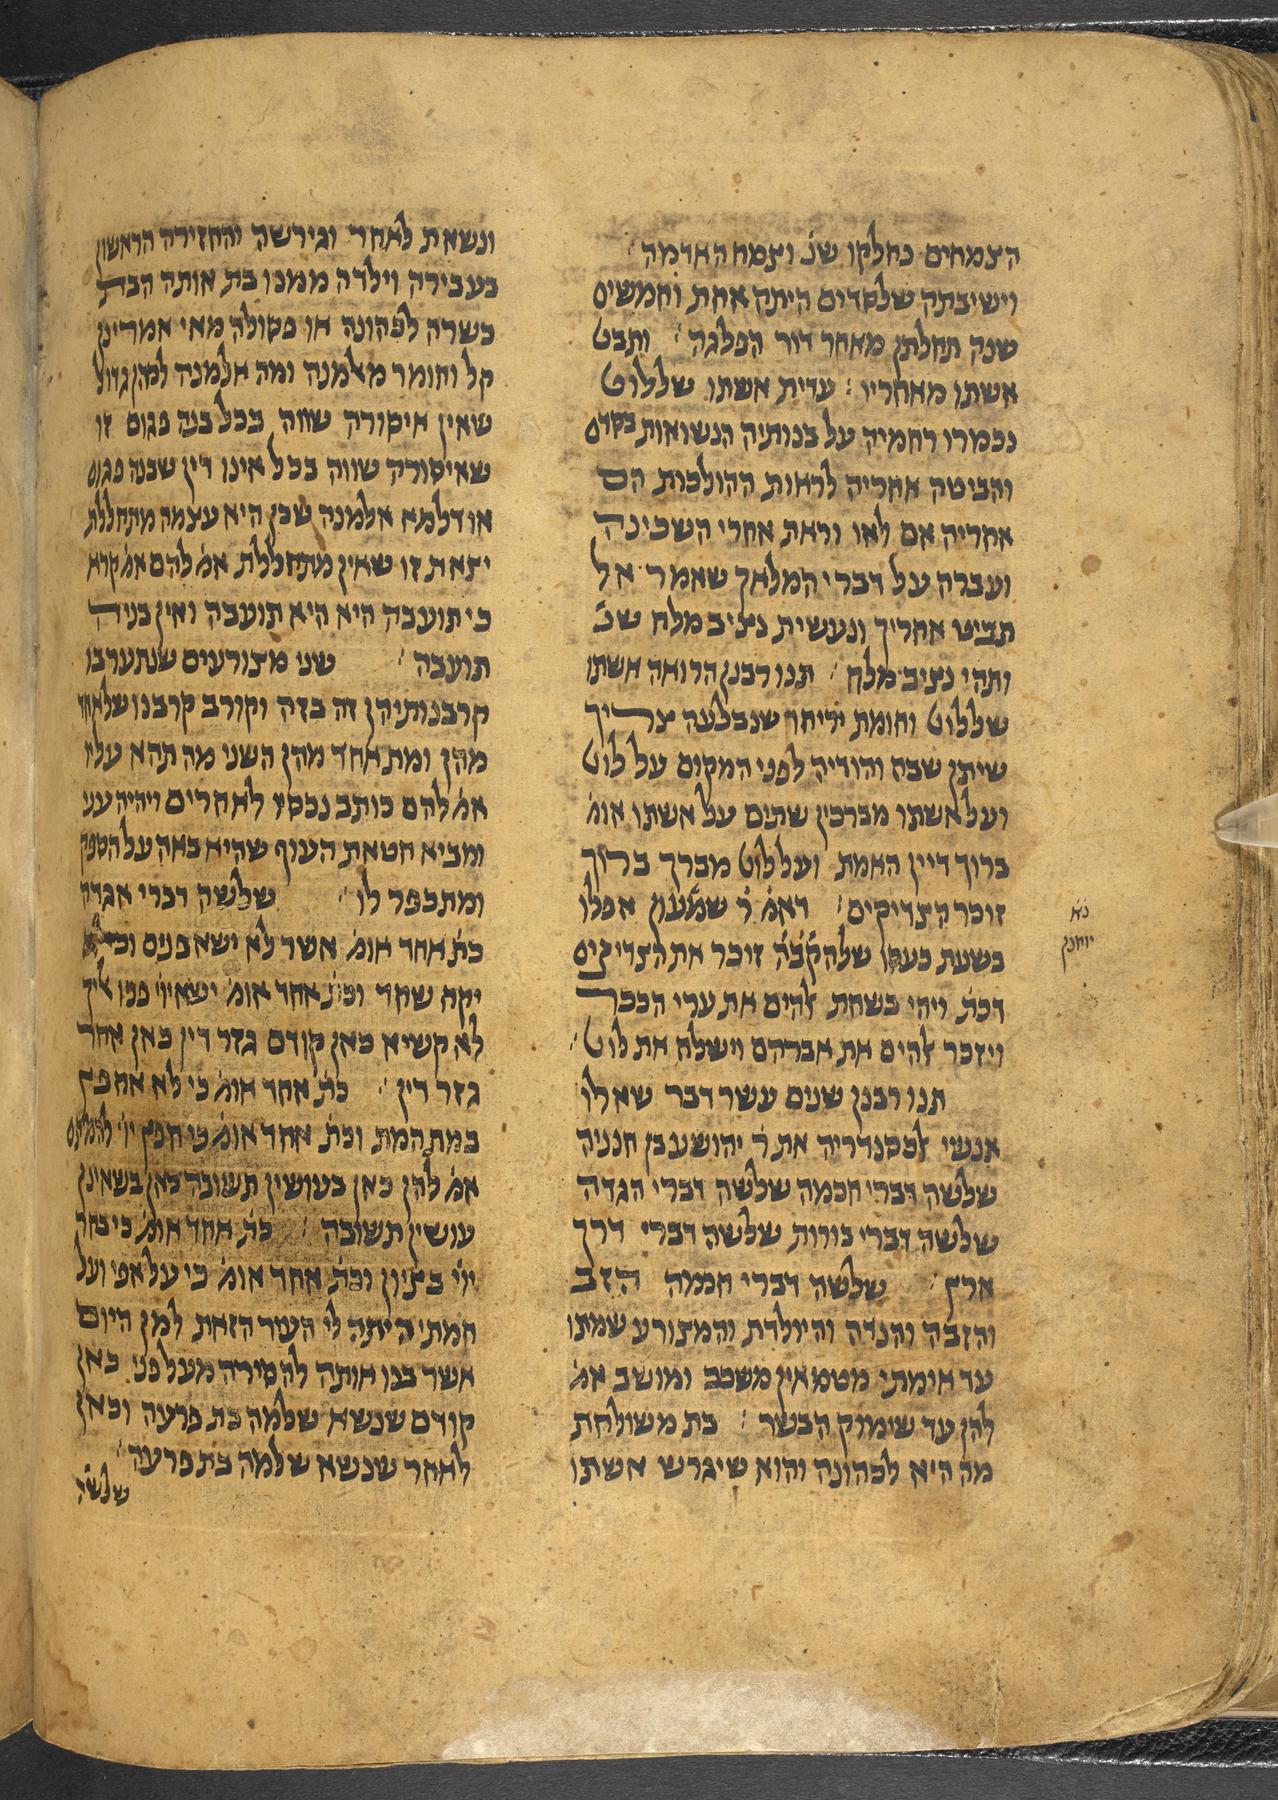 הצמחים כחלקו שנ' ותצמח האדמה :
וישיבתה שלסדום היתה אחת וחמשים
שנה תחלתן מאחר דור הפלגה : ותבט
אשתו מאחריו : עדית אשתו שללוט
נכמרו רחמיה על בנותיה הנשואות בסדום
והביטה אחריה לראות ההולכות הם
אחריה אם לאו וראת אחרי השכינה
ועברה על דברי המלאך שאמר אל
תביט אחריך ונעשית נציב מלח שנ'
ותהי נציב מלח : תנו רבנן הרואה אשתו
שללוט וחומת יריחו שנבלעה צריך
שיתן שבח והודיה לפני המקום על לוט
ועל אשתו מברכין שתים על אשתו אומ'
ברוך דיין האמת ועל לוט מברך ברוך
זוכר הצדיקים : דאמ' ר' שמעון אפלו
בשעת כעסו שלהקב"ה זוכר את הצדיקים
דכת' ויהי בשחת אלהים את ערי הככר
ויזכר אלהים את אברהם וישלח את לוט :
תנו רבנן שנים עשר דבר שאלו
אנשי אלכסנדריה את ר' יהושע בן חנניה
שלשה דברי חכמה שלשה דברי הגדה
שלשה דברי בורות שלשה דברי דרך
ארץ : שלשה דברי חכמה הזב
והזבה והנדה והיולדת והמצורע שמתו
עד אימתי מטמאין משכב ומושב אמ'
להן עד שימוק הבשר : בת משולחת
מה היא לכהונה והוא שיגרש אשתו
נ"א
יוחנן
ונשאת לאחר וגירשה והחזירה הראשון
בעבירה וילדה ממנו בת אותה הבת
כשרה לכהונה או פסולה מאי אמרינן
קל וחומר מאלמנה ומה אלמנה לכהן גדול
שאין איסורה שווה בכל בנה פגום זו
שאיסורה שווה בכל אינו דין שבנה פגום
או דלמא אלמנה שכן היא עצמה מתחללת
יצאת זו שאין מתחללת אמ' להם אמ' קרא
כי תועבה היא היא תועבה ואין בניה
תועבה : שני מצורעים שנתערבו
קרבנותיהן זה בזה וקורב קרבנו שלאחד
מהן ומת אחד מהן השני מה תהא עליו
אמ' להם כותב נכסיו לאחרים ויהיה עני
ומביא חטאת העוף שהיא באה על הספק
ומתכפר לו : שלשה דברי אגדה
כת' אחד אומ' אשר לא ישא פנים ולא
יקח שחד וכת' אחד אומ' ישא יי' פניו אליך
לא קשיא כאן קודם גזר דין כאן אחר
גזר דין : כת' אחד אומ' כי לא אחפץ
במת המת וכת' אחד אומ' כי חפץ יי' להמיתם
אמ' להן כאן בעושין תשובה כאן בשאינן
עושין תשובה : כת' אחד אומ' כי בחר
יי' בציון וכת' אחד אומ' כי על אפי ועל
חמתי היתה לי העיר הזאת למן היום
אשר בנו אותה להסירה מעל פני כאן
קודם שנשא שלמה בת פרעה וכאן
לאחר שנשא שלמה בת פרעה :
שלשה